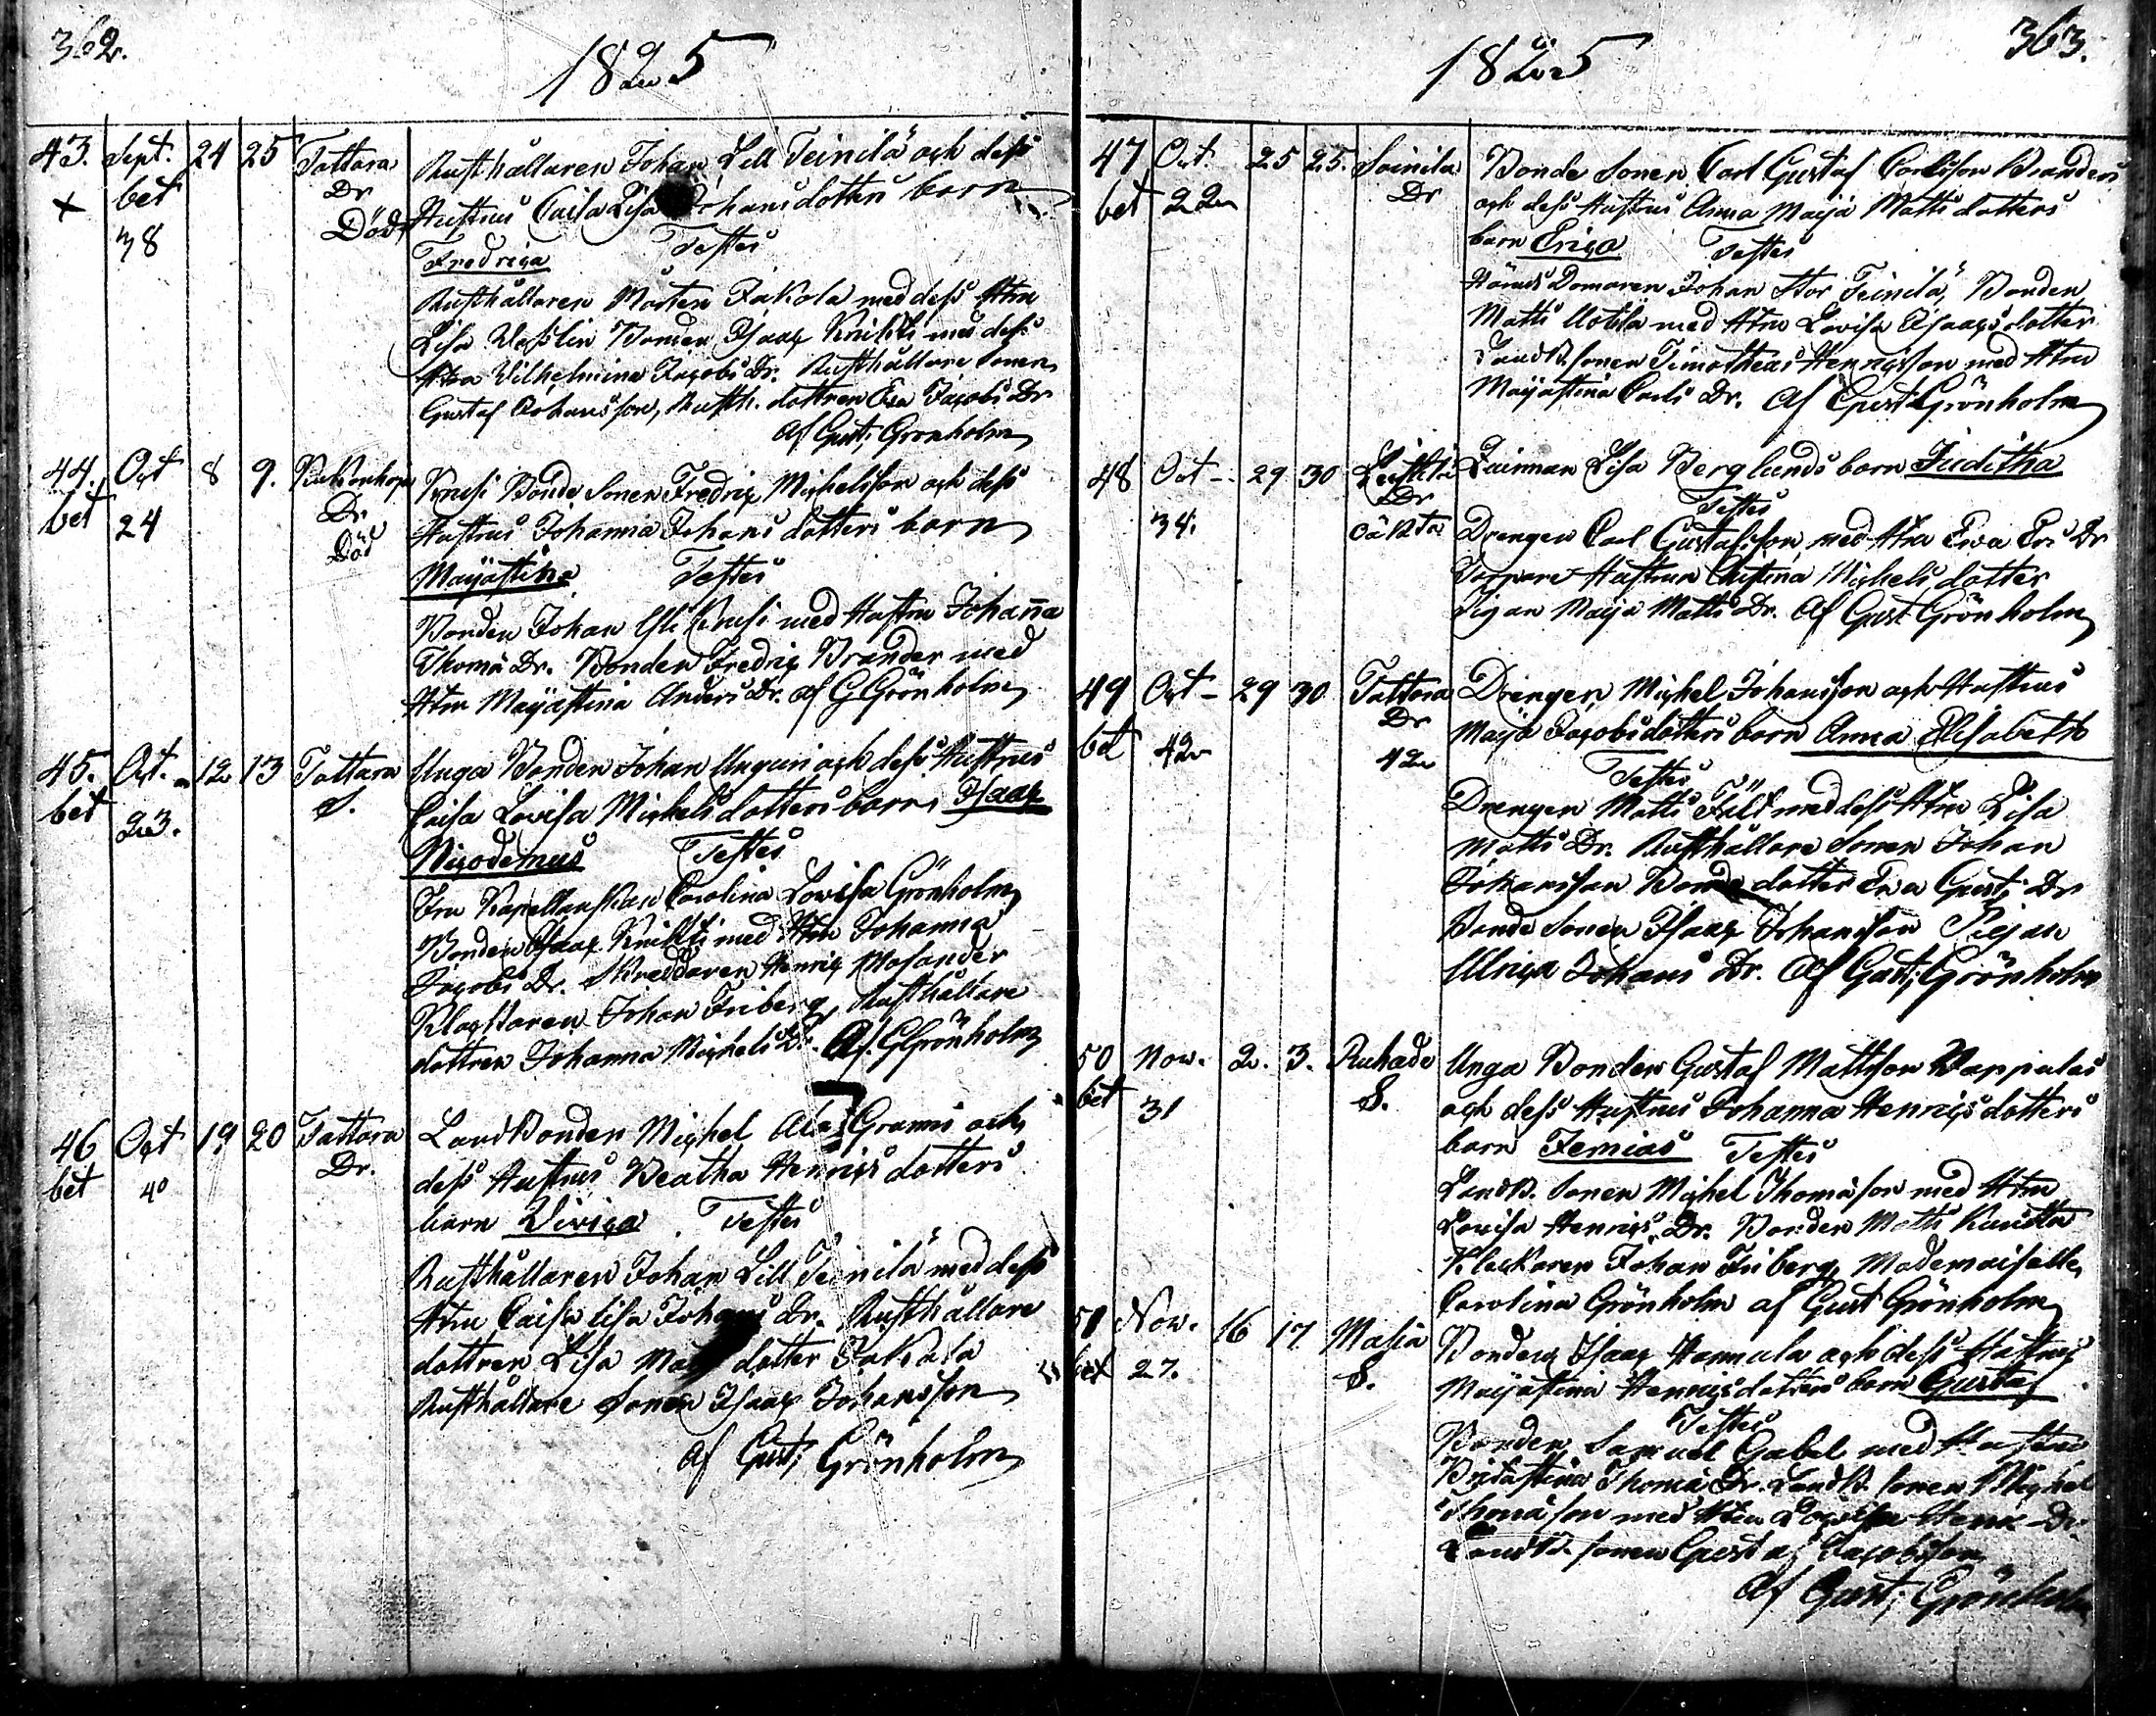 362.
1825
43. Sept. 24 25 Tattara Rusthållaren Johan Lill Teinilä och dess
x bet Dr Hustrus Caisa Lisa Johansdotters barn
38 Död Fredrica Testes
Rusthållaren Mårten Jakola med dess Htru
Lisa Bonden Isaac Knihti med dess
Htru Vilhelmina Jacobs Dr. Rusthållare Sonen
Gustaf Johansson, Rusth. dottren Eva Jacobs Dr
Af Gust; Grönholm
44. Oct 8 9. Krusi Bonde Sonen Fredric Michelsson och dess
bet 24 Dr. Hustrus Johanna Johans dotters barn
Död
Majastina Testes
Bonden Johan Krusi med Hustru Johanna
Thomä Dr. Bonden Fredric Brander med
Htru Majastina Anders Dr. af G Grönholm
45. Oct. 12 13 Tattara Unga Bonden Johan Unguri och dess Hustrus
bet 23. S. Caisa Lovisa Michelsdotters barn Isaac
Nicodemus Testes
Fru Kapellanskan Carolina Lovisa Grönholm
Bonden Isaac Knihti med Htru Johanna
Jacobs Dr. Skreddaren Henric Molander
Klockaren Johan Friberg, Rusthållare
dottren Johanna Michels Dr. Af. G Grönholm
46 Oct 19 20 Tattara Landbonden Michel Ala Granni och
bet 40 Dr. dess Hustrus Beatha Henrics dotters
barn Vivica Testes
Rusthållaren Johan Lill Teinilä med dess
Htru Caisa Lisa Johans Dr. Rusthållare
dottren Lisa dotter Jakola
Rusthållare Sonen Isaac Johansson
af Gust; Grönholm
363.
1825
47 Oct. 25 25. Soinila Bonde Sonen Carl Gustaf Carlsson Branders
bet 22 Dr och dess Hustrus Anna Maja Matts dotters
barn Erica Testes
Härads Domaren Johan Stor Teinilä, Bonden
Matts Uotila med Htru Lovisa Isaacs dotter
Landb. sonen Timotheus Henricsson med Htru
Majastina Carls Dr. Af Gust Grönholm
48 Oct - 29 30 Inhiman Lisa Berglunds barn Juditha
34. Dr Testes
oäkta Drengen Carl Gustafsson med Htru Eva Er: Dr
Torpare Hustrun Christina Michels dotter
Pigan Maja Matts Dr. Af Gust Grönholm
49 Oct - 29 30 Tattara Drengen Michel Johansson och Hustrus
bet 42 Dr Maja Jacobsdotters barn Anna Elisabeth
42 Testes
Drengen Matts Fält med dess Htru Lisa
Matts Dr. Rusthållare Sonen Johan
Johansson Bonde dotter Eva Gust; Dr
Bonde Sonen Isaac Johansson Pigan
Ulrica Johans Dr. Af Gust; Grönholm
50 Nov. 2. 3. Ruhade Unga Bonden Gustaf Mattsson Vappulas
bet 31 S. och dess Hustrus Johanna Henrics dotters
barn Jemias Testes
Landb. Sonen Michel Thomäson med Htru
Lovisa Henrics. Dr. Bonden Matts
Klockaren Johan Friberg Mademoiselle
Carolina Grönholm af Gust Grönholm
51 Nov. 16 17 Masia Bonden Isaac Hannula och dess Hustrus
bet 27. S. Majastina Henricsdotters barn Gustaf
Testes
Bonden Samuel Gabel med Hustru
Britastina Thomä Dr. Landb. sonen Michel
Thomäson med Htru Lovisa Henr. Dr.
Landb. sonen Gustaf Jacobsson
Af Gust; Grönholm